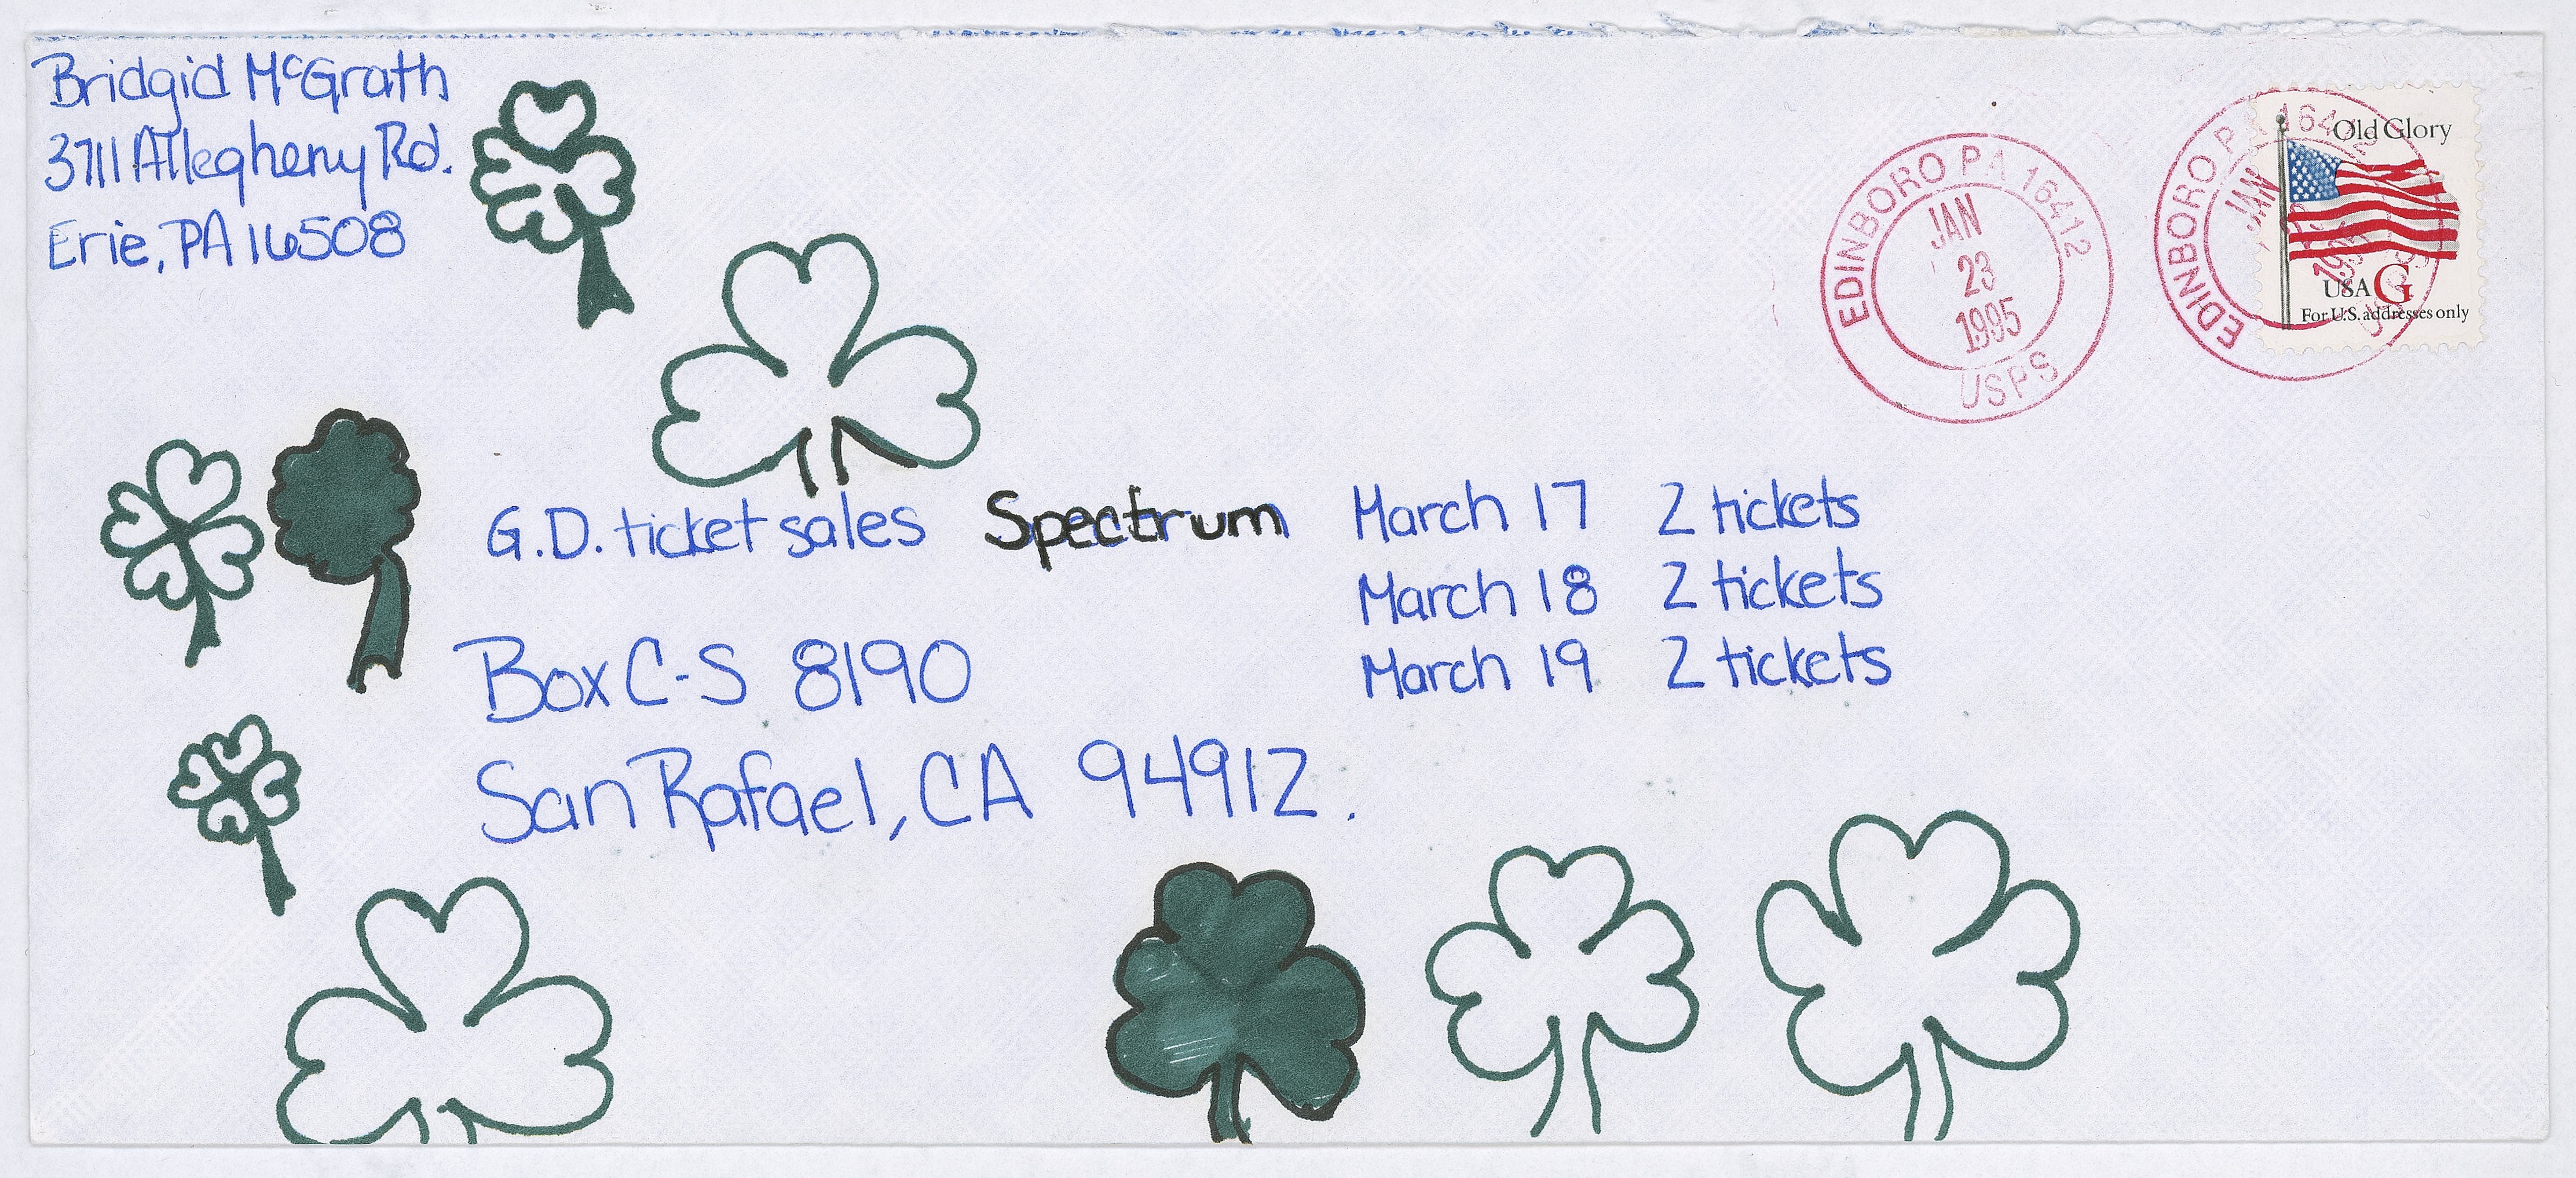 Bridgid McGrath
3711 Allegheny Rd.
Erie, PA 16508
EDINBORO PA 16412
JAN
23
1995
USPS
EDINBORO PA 16412
JAN
Old Glory
USA G
For U.S. addresses only
G.D. ticket sales Spectrum March 17 2 tickets
March 18 2 tickets
March 19 2 tickets
Box C-S 8190
San Rafael, CA 94912.